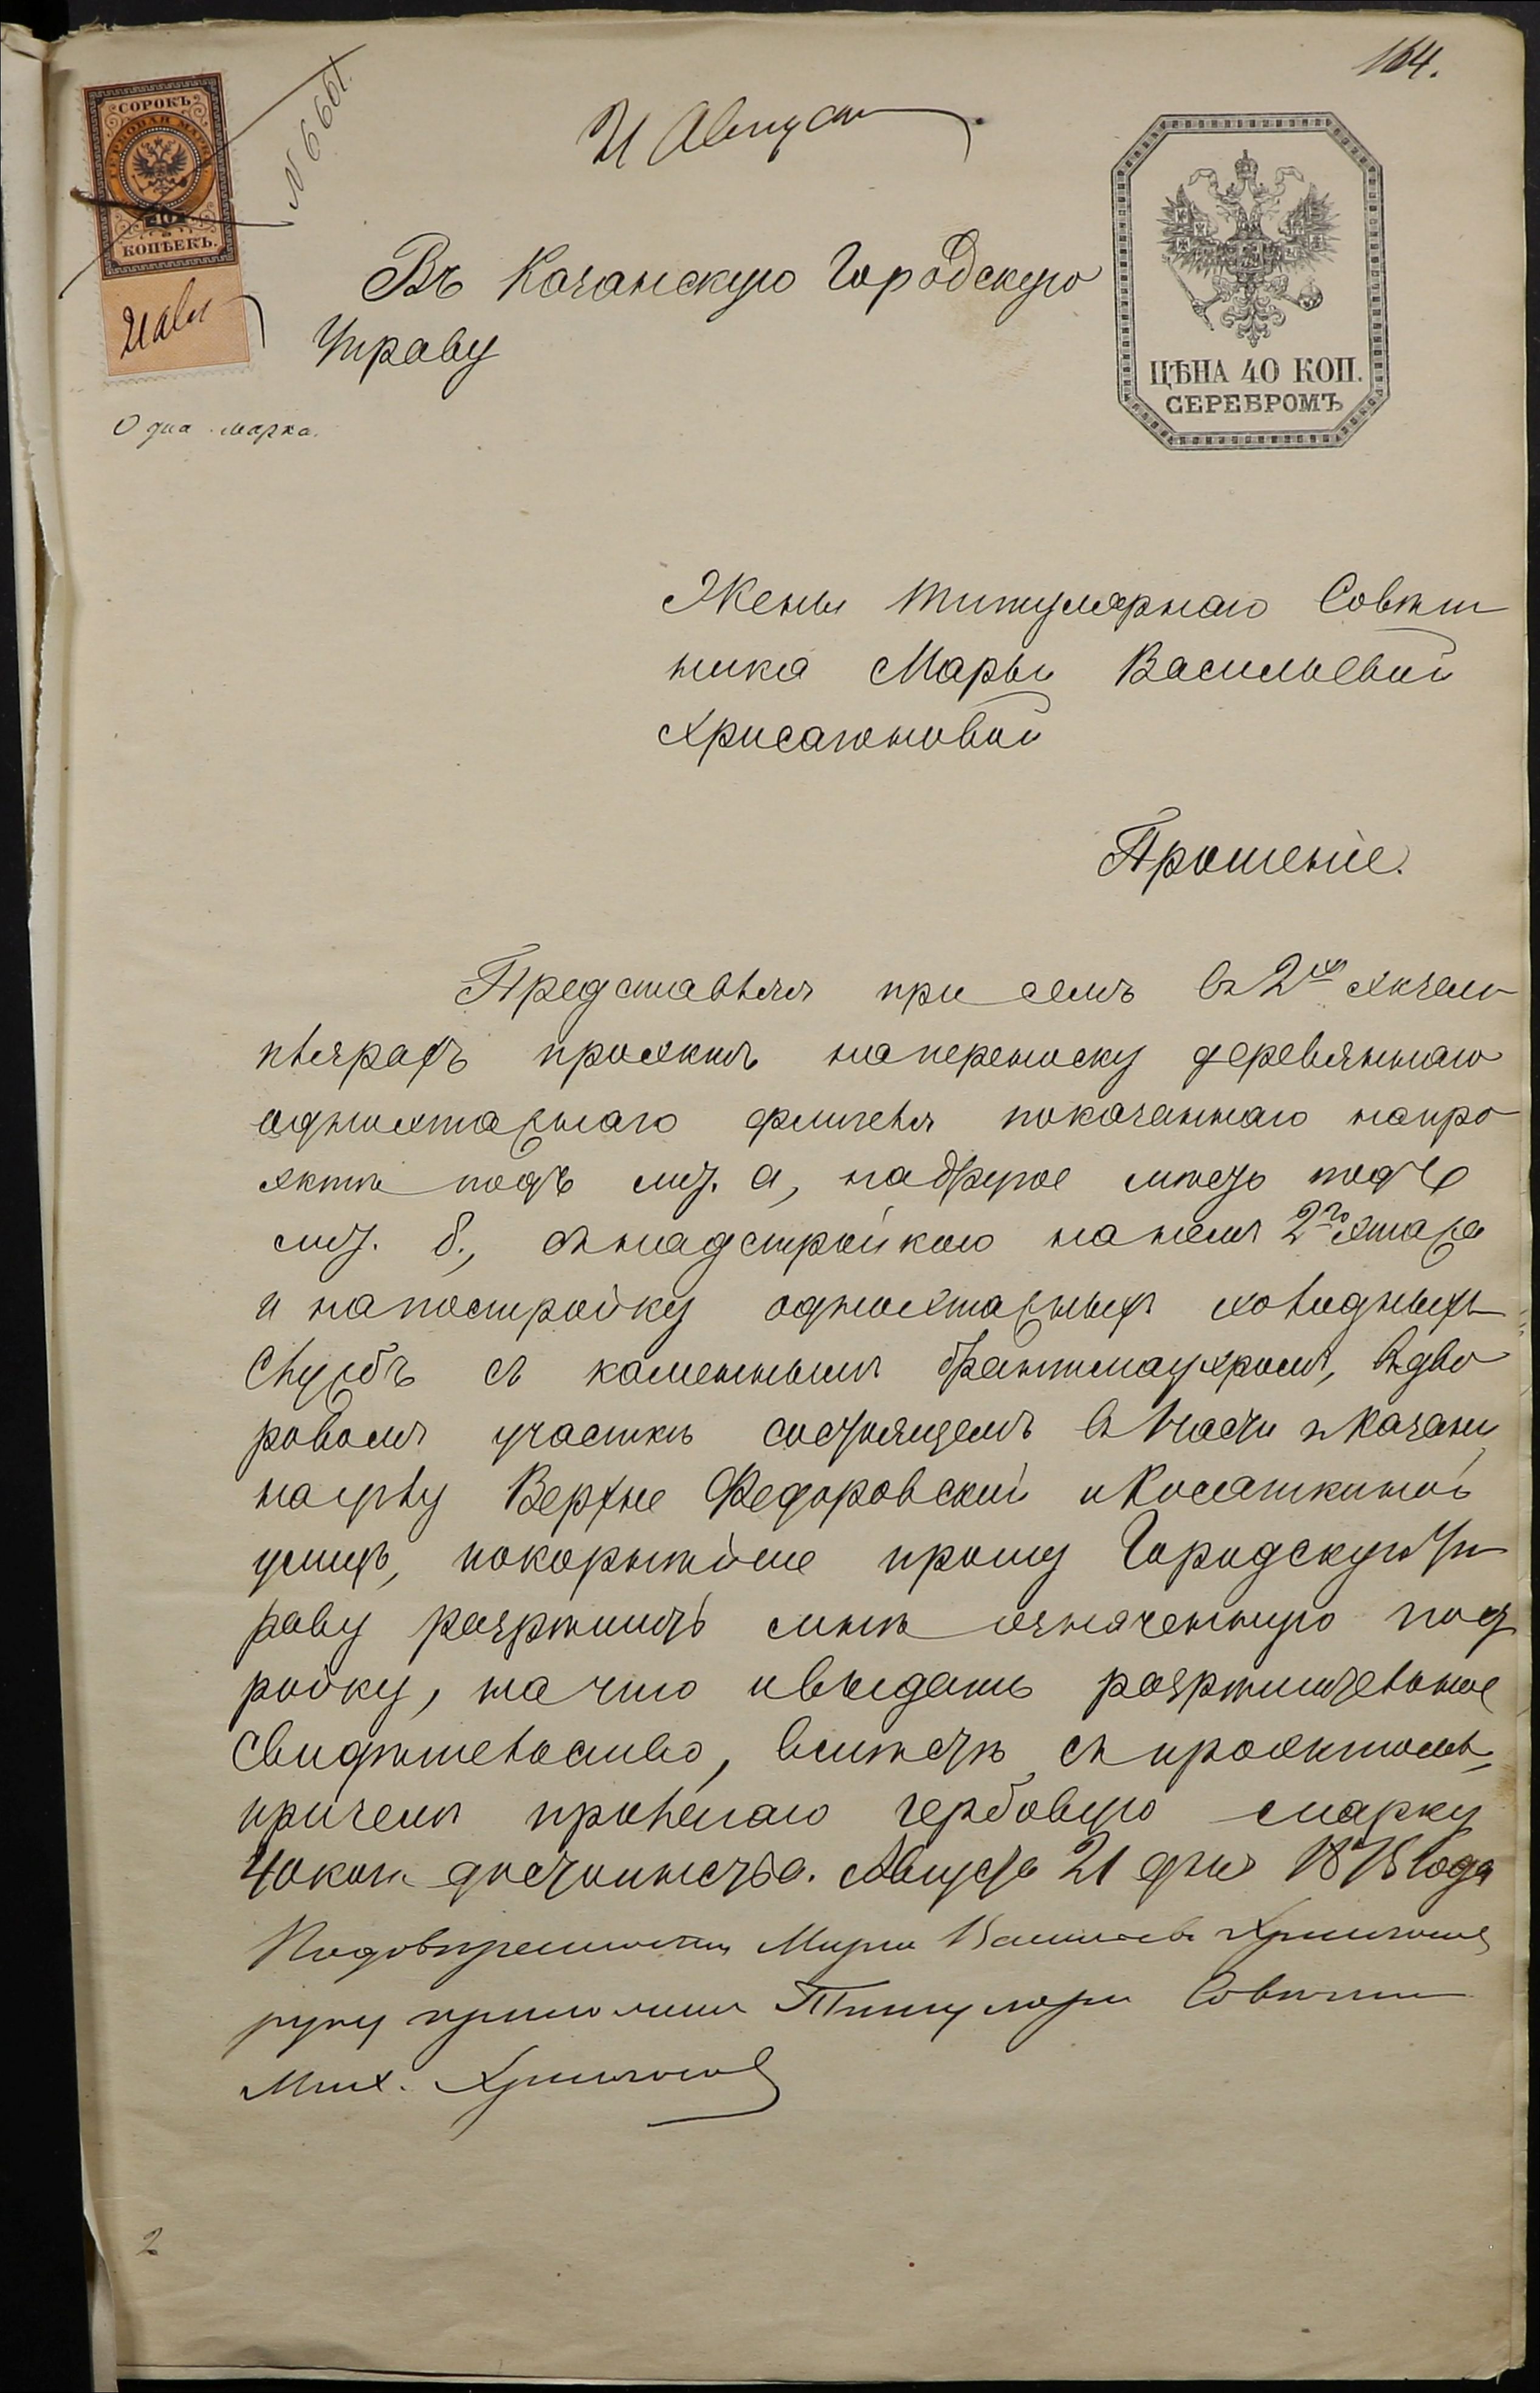 164.
СОРОКЪ
ГЕРБОВАЯ МАРКА
40
КОПѢЕКЪ.
№ 6661.
21 Август
21 авг
Одна марка.
ЦѢНА 40 КОП.
СЕРЕБРОМЪ
Въ Казанскую Городскую
Управу
Жены Титулярнаго Совѣт
ника Марьи Васильевой
Хрисанѳовой
Прошеніе.
Представляя при семъ въ 2хъ экзем
плярахъ проэктъ на переноску деревяннаго
одноэтажнаго флигеля показаннаго на про
эктѣ подъ лит. а, на другое мѣсто подъ
лит. б., съ надстройкою на немъ 2го этажа
и на постройку одноэтажныхъ холодныхъ
службъ съ каменнымъ брантмауэромъ, въ дво
ровомъ участкѣ состоящемъ въ 1 части г. Казани
на углу Верхне Федоровской и Касаткиной
улицъ, покорнѣйше прошу Городскую Уп
раву разрѣшить мнѣ означенную пост
ройку, на что и выдать разрѣшительное
свидѣтельство, вмѣстѣ съ проэктомъ,
причемъ прилагаю гербовую марку
40 коп. достоинства. Августа 21 дня 1878 года
По довѣренности Марьи Васильев Хрисанѳовой
руку приложилъ Титуляр Совѣтн
Мих. Хрисанѳовъ
2